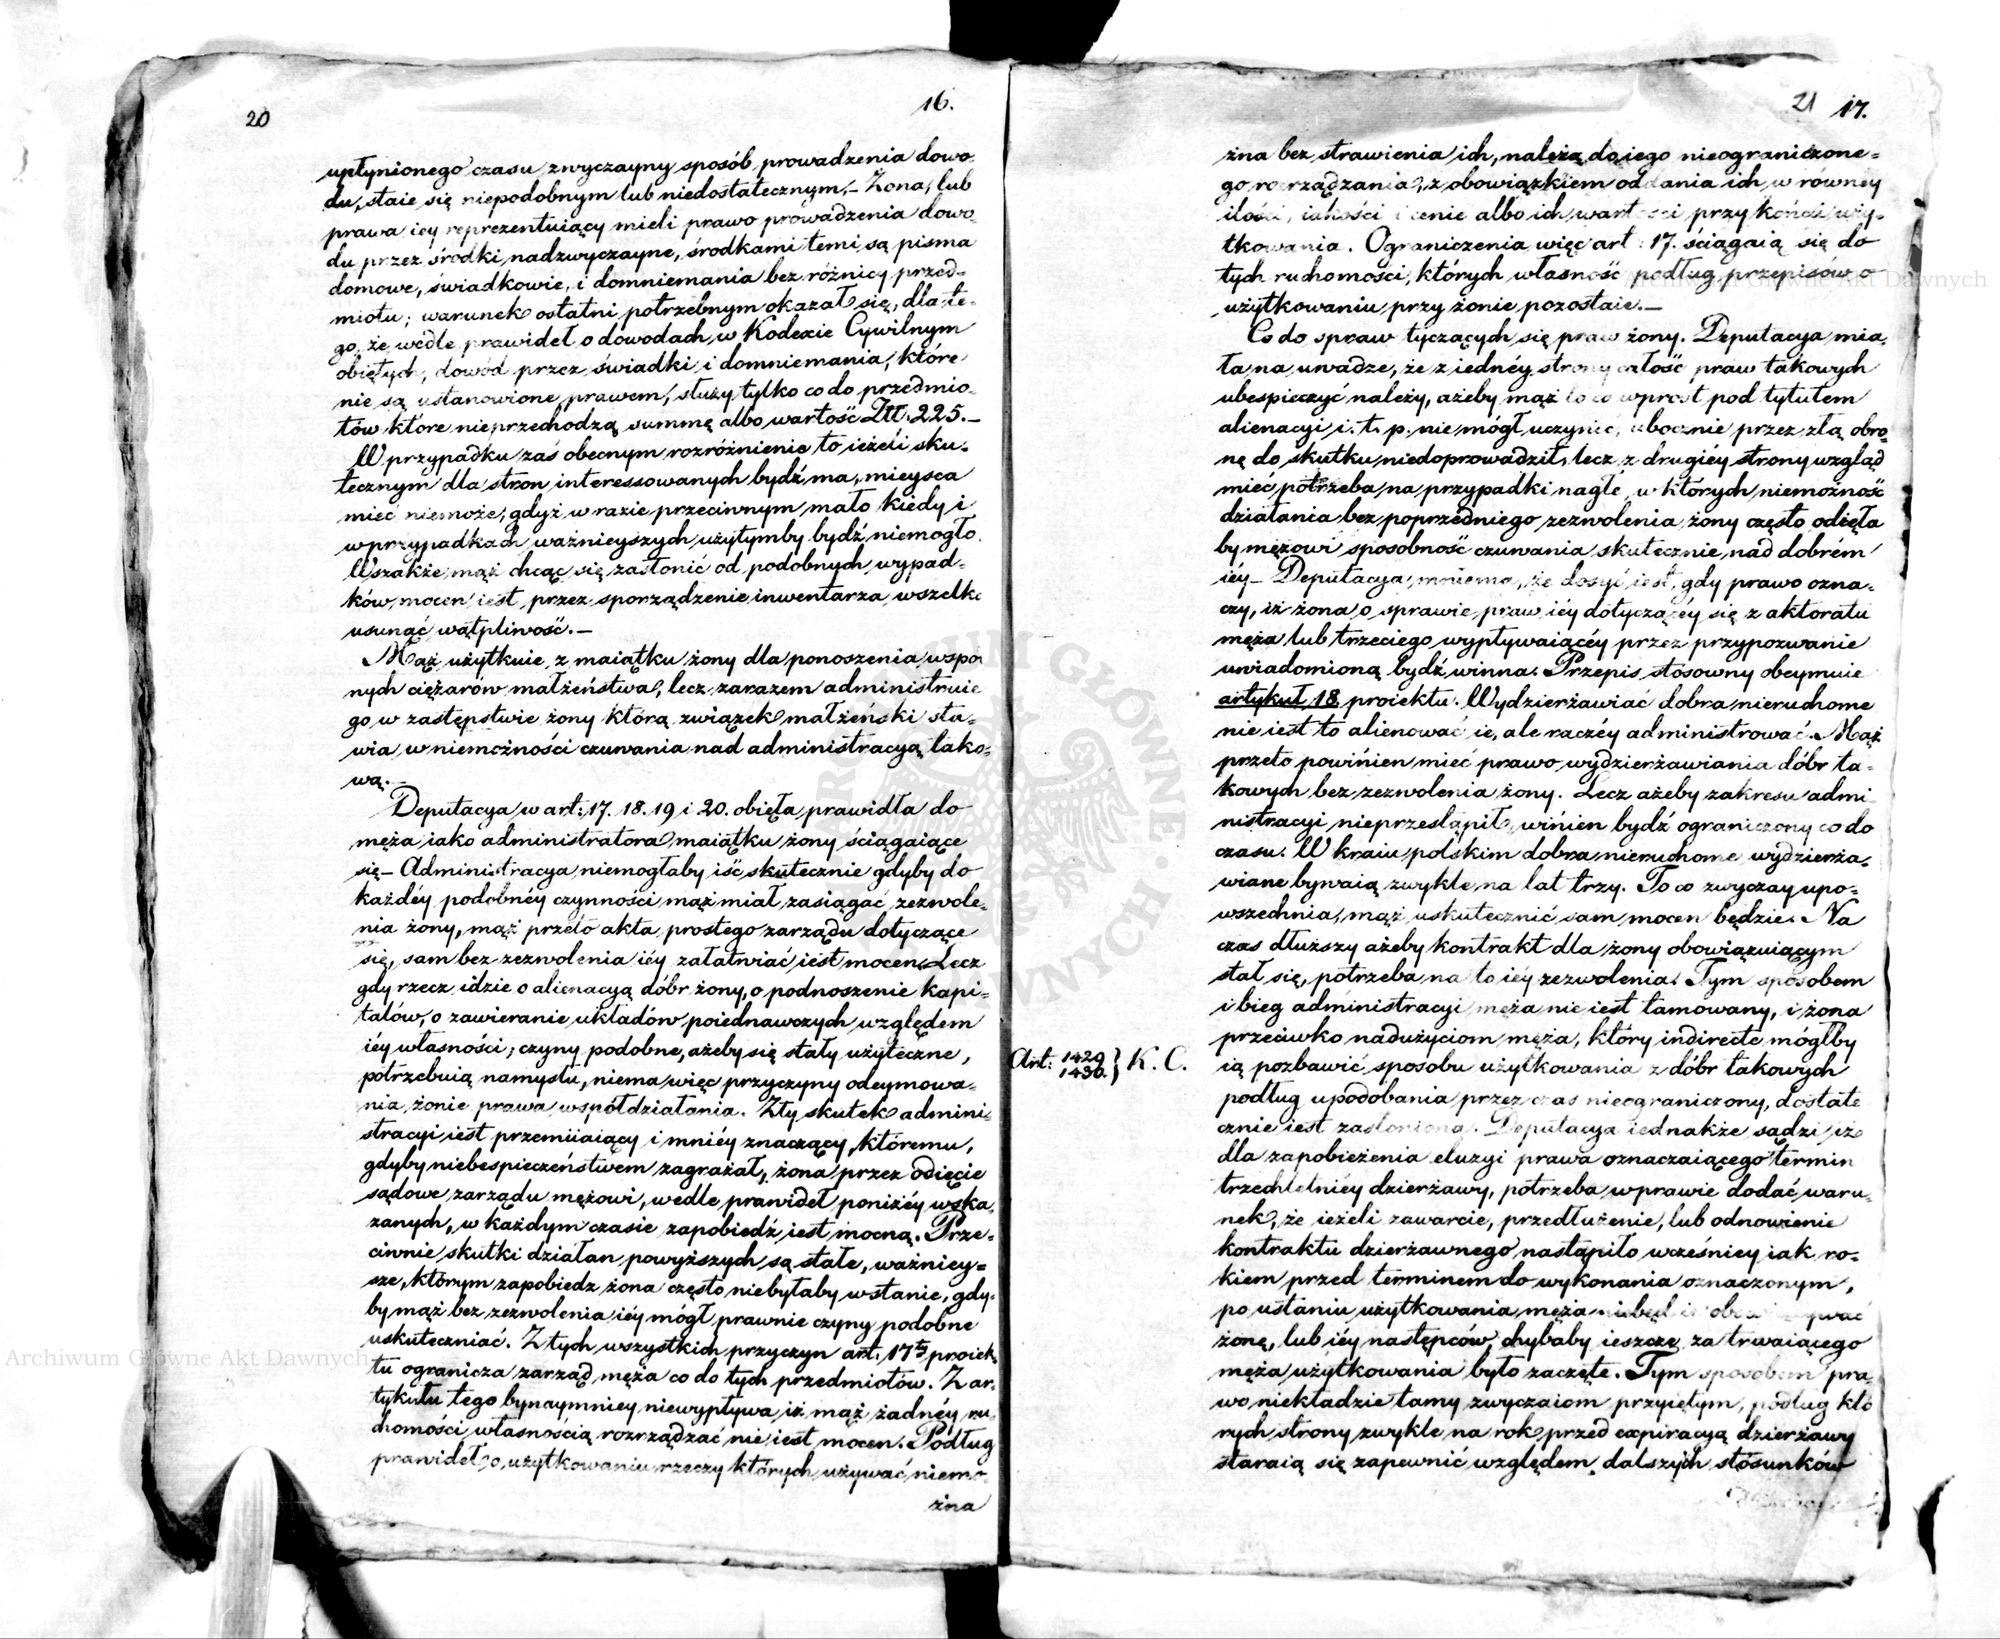 20
16.
upłynionego czasu zwyczayny sposób prowadzenia dowo-
du, staie się niepodobnym lub niedostatecznym. – Żona, lub
prawa iey reprezentuiący mieli prawo prowadzenia dowo-
du przez środki nadzwyczayne, środkami temi są pisma
domowe, świadkowie, i domniemania bez różnicy przed-
miotu; warunek ostatni potrzebnym okazał się, dla te-
go, że wedle prawideł o dowodach, w Kodexie Cywilnym
obiętych, dowód przez świadki i domniemania, które
nie są ustanowione prawem, służy tylko co do przedmio-
tów które nieprzechodzą summę albo wartość Zł. 225. –
W przypadku zaś obecnym rozróżnienie to ieżeli sku-
tecznym dla stron interessowanych bydź ma, mieysca
mieć niemoże, gdyż w razie przeciwnym mało kiedy i
w przypadkach ważnieyszych użytymby bydź niemogło.
Wszakże mąż chcąc się zasłonić od podobnych wypad-
ków, mocen iest, przez sporządzenie inwentarza, wszelką
usunąć wątpliwość. –
Mąż użytkuie z maiątku żony dla ponoszenia wspól
nych ciężarów małżeństwa, lecz zarazem administruie
go w zastępstwie żony którą związek małżeński sta-
wia w niemożności czuwania nad administracyą tako-
wą. –
Deputacya w art: 17. 18. 19 i 20. obięła prawidła do
męża iako administratora maiątku żony ściągaiące
się – Administracya niemogłaby iść skutecznie gdyby do
każdéy podobnéy czynności mąż miał zasiągać zezwole-
nia żony, mąż przeto akta prostego zarządu dotyczące
się, sam bez zezwolenia iéy załatwiać iest mocen. Lecz
gdy rzecz idzie o alienacyą dóbr żony, o podnoszenie kapi-
tałów, o zawieranie układów poiednawczych względem
iéy własności; czyny podobne, ażeby się stały użyteczne,
potrzebuią namysłu, niema więc przyczyny odeymowa-
nia żonie prawa współdziałania. Zły skutek admini-
stracyi iest przemiiaiący i mniéy znaczący, któremu,
gdyby niebespieczeństwem zagrażał, żona przez odięcie
sądowe zarządu mężowi, wedle prawideł poniżéy wska-
zanych, w każdym czasie zapobiedz iest mocną. Prze-
ciwnie skutki działan powyższych są stałe, ważniey-
sze, którym zapobiedz żona często niebyłaby wstanie, gdy-
by mąż bez zezwolenia iéy mógł prawnie czyny podobne
uskuteczniać. Z tych wszystkich przyczyn art. 17ty proiek-
tu ogranicza zarząd męża co do tych przedmiotów. Z ar-
tykułu tego bynaymniey niewypływa iż mąż żadnéy ru-
chomości własnością rozrządzać nie iest mocen. Podług
prawideł o użytkowaniu rzeczy których używać niemo-
żna
21 17.
żna bez strawienia ich, należą do iego nieograniczone-
go rozrządzania, z obowiązkiem oddania ich w równéy
ilości, iakości i cenie albo ich wartości przy końcu uży-
tkowania. Ograniczenia więc art: 17. ściągaią się do
tych ruchomości, których własność podług przepisów o
użytkowaniu przy żonie pozostaie. –
Co do spraw tyczących się praw żony. Deputacya mia-
ła na uwadze, że z iednéy strony całość praw takowych
ubespieczyć należy, ażeby mąż to co wprost pod tytułem
alienacyi i. t. p. nie mógł uczynić, ubocznie przez złą obro-
nę do skutku niedoprowadził, lecz z drugiéy strony wzgląd
mieć potrzeba na przypadki nagłe, w których niemożność
działania bez poprzedniego zezwolenia żony często odięła
by mężowi sposobność czuwania skutecznie nad dobrém
iéy – Deputacya mniema, że dosyć iest, gdy prawo ozna-
czy, iż żona o sprawie praw iéy dotyczącéy się z aktoratu
męża lub trzeciego wypływaiącéy przez przypozwanie
uwiadomioną bydź winna. Przepis stósowny obeymuie
artykuł 18 proiektu. Wydzierżawiać dobra nieruchome
nie iest to alienować ie, ale raczéy administrować. Mąż
przeto powińien mieć prawo wydzierżawiania dóbr ta-
kowych bez zezwolenia żony. Lecz ażeby zakresu admi
nistracyi nieprzestąpił, wińien bydź ograniczony co do
czasu. W kraiu polskim dobra nieruchome wydzierża-
wiane bywaią zwykle na lat trzy. To co zwyczay upo-
wszechnia, mąż uskutecznić sam mocen będzie. Na
czas dłuższy ażeby kontrakt dla żony obowiązuiącym
stał się, potrzeba na to iéy zezwolenia. Tym sposobem
i bieg administracyi męża nie iest tamowany, i żona
przeciwko nadużyciom męża, który indirecte mógłby
Art: 1429 1430. } K. C.
ią pozbawić sposobu użytkowania z dóbr takowych
podług upodobania przez czas nieograniczony, dostate
cznie iest zasłoniona. Deputacya iednakże sądzi iż
dla zapobieżenia eluzyi prawa oznaczaiącego termin
trzechletniéy dzierżawy, potrzeba w prawie dodać waru-
nek, że ieżeli zawarcie, przedłużenie, lub odnowienie
kontraktu dzierżawnego nastąpiło wcześniey iak ro-
kiem przed terminem do wykonania oznaczonym,
po ustaniu użytkowania męża niebędzie obowiązywać
żonę, lub iéy następców, chybaby ieszcze za trwaiącego
męża użytkowania było zaczęte. Tym sposobem pra
wo niekładzie tamy zwyczaiom przyiętym, podług któ
rych strony zwykle na rok przed expiracyą dzierżawy
staraią się zapewnić względem dalszych stósunków
Archiwum Główne Akt Dawnych
Archiwum Główne Akt Dawnych